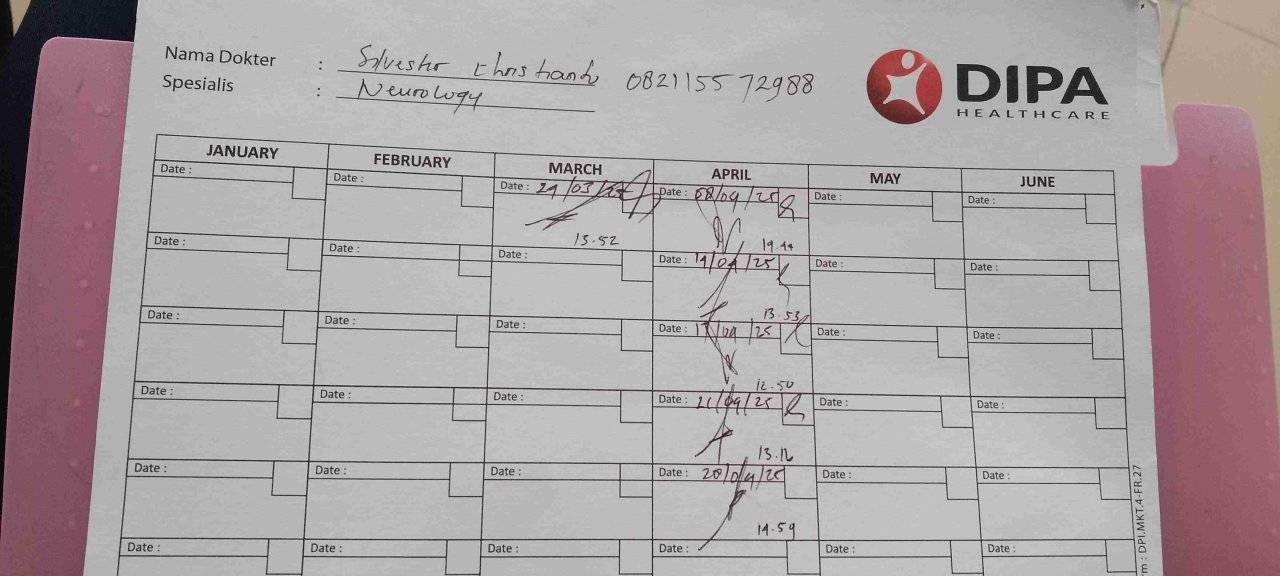 Nama Dokter : Silvester Christianto 082115572988
Spesialis : Neurology
DIPA
HEALTHCARE
JANUARY FEBRUARY MARCH APRIL MAY JUNE
Date : Date : Date : 24/03/25 Date : 08/04/25 Date : Date :
13.52 14.44
Date : Date : Date : Date : 14/04/25 Date : Date :
13.53
Date : Date : Date : Date : 17/04/25 Date : Date :
12.50
Date : Date : Date : Date : 21/04/25 Date : Date :
13.16
Date : Date : Date : Date : 28/04/25 Date : Date :
14.59
Date : Date : Date : Date : Date : Date :
m : DPI.MKT.4-FR.27